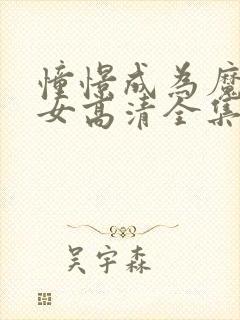 憧憬成为魔
女高清全集
吴宇森